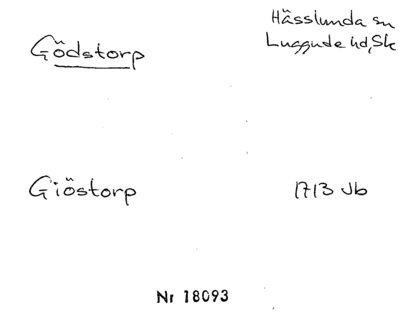 Hässlunda sn
Gödstorp
Luggude hd, Sk
Giöstorp
1713 Jb
Nr 18093